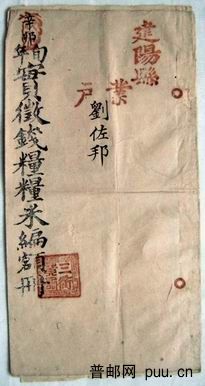 建陽縣
業戶
劉佐邦
辛卯年旬實徵錢糧糧米編額冊
普邮网 puu.cn